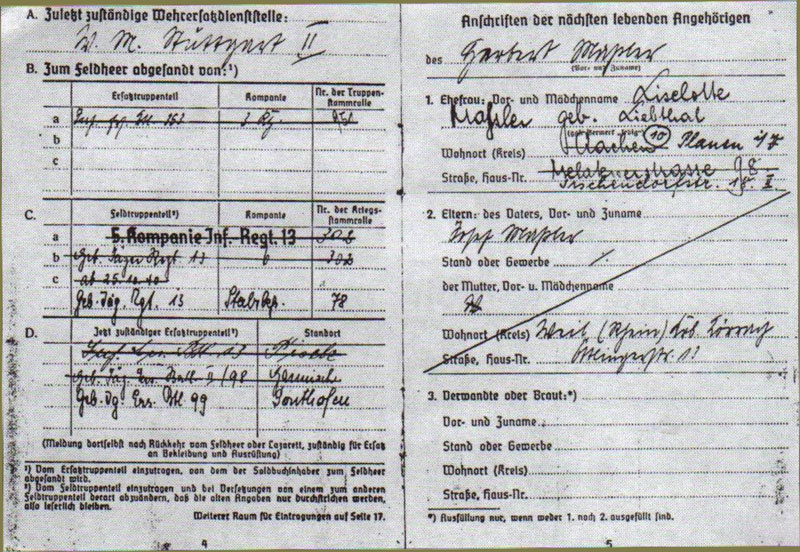 A. Zuletzt zuständige Wehrersatzdienststelle:
W. M. Stuttgart II
B. Zum Feldheer abgesandt von:¹)
Ersatztruppenteil Kompanie Nr. der Truppenstammrolle
a
b
c
C. Feldtruppenteil²) Kompanie Nr. der Kriegsstammrolle
a 5. Kompanie Inf.-Regt. 13 302
b Geb. Jäger Regt 13 6 302
c ab 25.10.40
Geb. Jäg. Rgt. 13 Stabskp. 78
D. Jetzt zuständiger Ersatztruppenteil³) Standort
Geb. Jäg. Ers. Batl. II/98 Garmisch
Geb. Jg. Ers. Btl. 99 Sonthofen
(Meldung dortselbst nach Rückkehr vom Feldheer oder Lazarett, zuständig für Ersatz
an Bekleidung und Ausrüstung)
¹) Vom Ersatztruppenteil einzutragen, von dem der Soldbuchinhaber zum Feldheer
abgesandt wird.
²) Vom Feldtruppenteil einzutragen und bei Versetzungen von einem zum anderen
Feldtruppenteil derart abzuändern, daß die alten Angaben nur durchstrichen werden,
also leserlich bleiben.
Weiterer Raum für Eintragungen auf Seite 17.
4
Anschriften der nächsten lebenden Angehörigen
des Herbert Maßler
(Vor- und Zuname)
1. Ehefrau: Vor- und Mädchenname Liselotte
Maßler geb. Liebthal
Wohnort (Kreis) Aachen 10 Plauen i/V
Straße, Haus-Nr. 98
Tischendorfstr. 18 II
2. Eltern: des Vaters, Vor- und Zuname
Josef Maßler
Stand oder Gewerbe
der Mutter, Vor- u. Mädchenname
Wohnort (Kreis) Weil (Rhein) Krs. Lörrach
Straße, Haus-Nr. Ötlingerstr. 13
3. Verwandte oder Braut:*)
Vor- und Zuname
Stand oder Gewerbe
Wohnort (Kreis)
Straße, Haus-Nr.
*) Ausfüllung nur, wenn weder 1. noch 2. ausgefüllt sind.
5